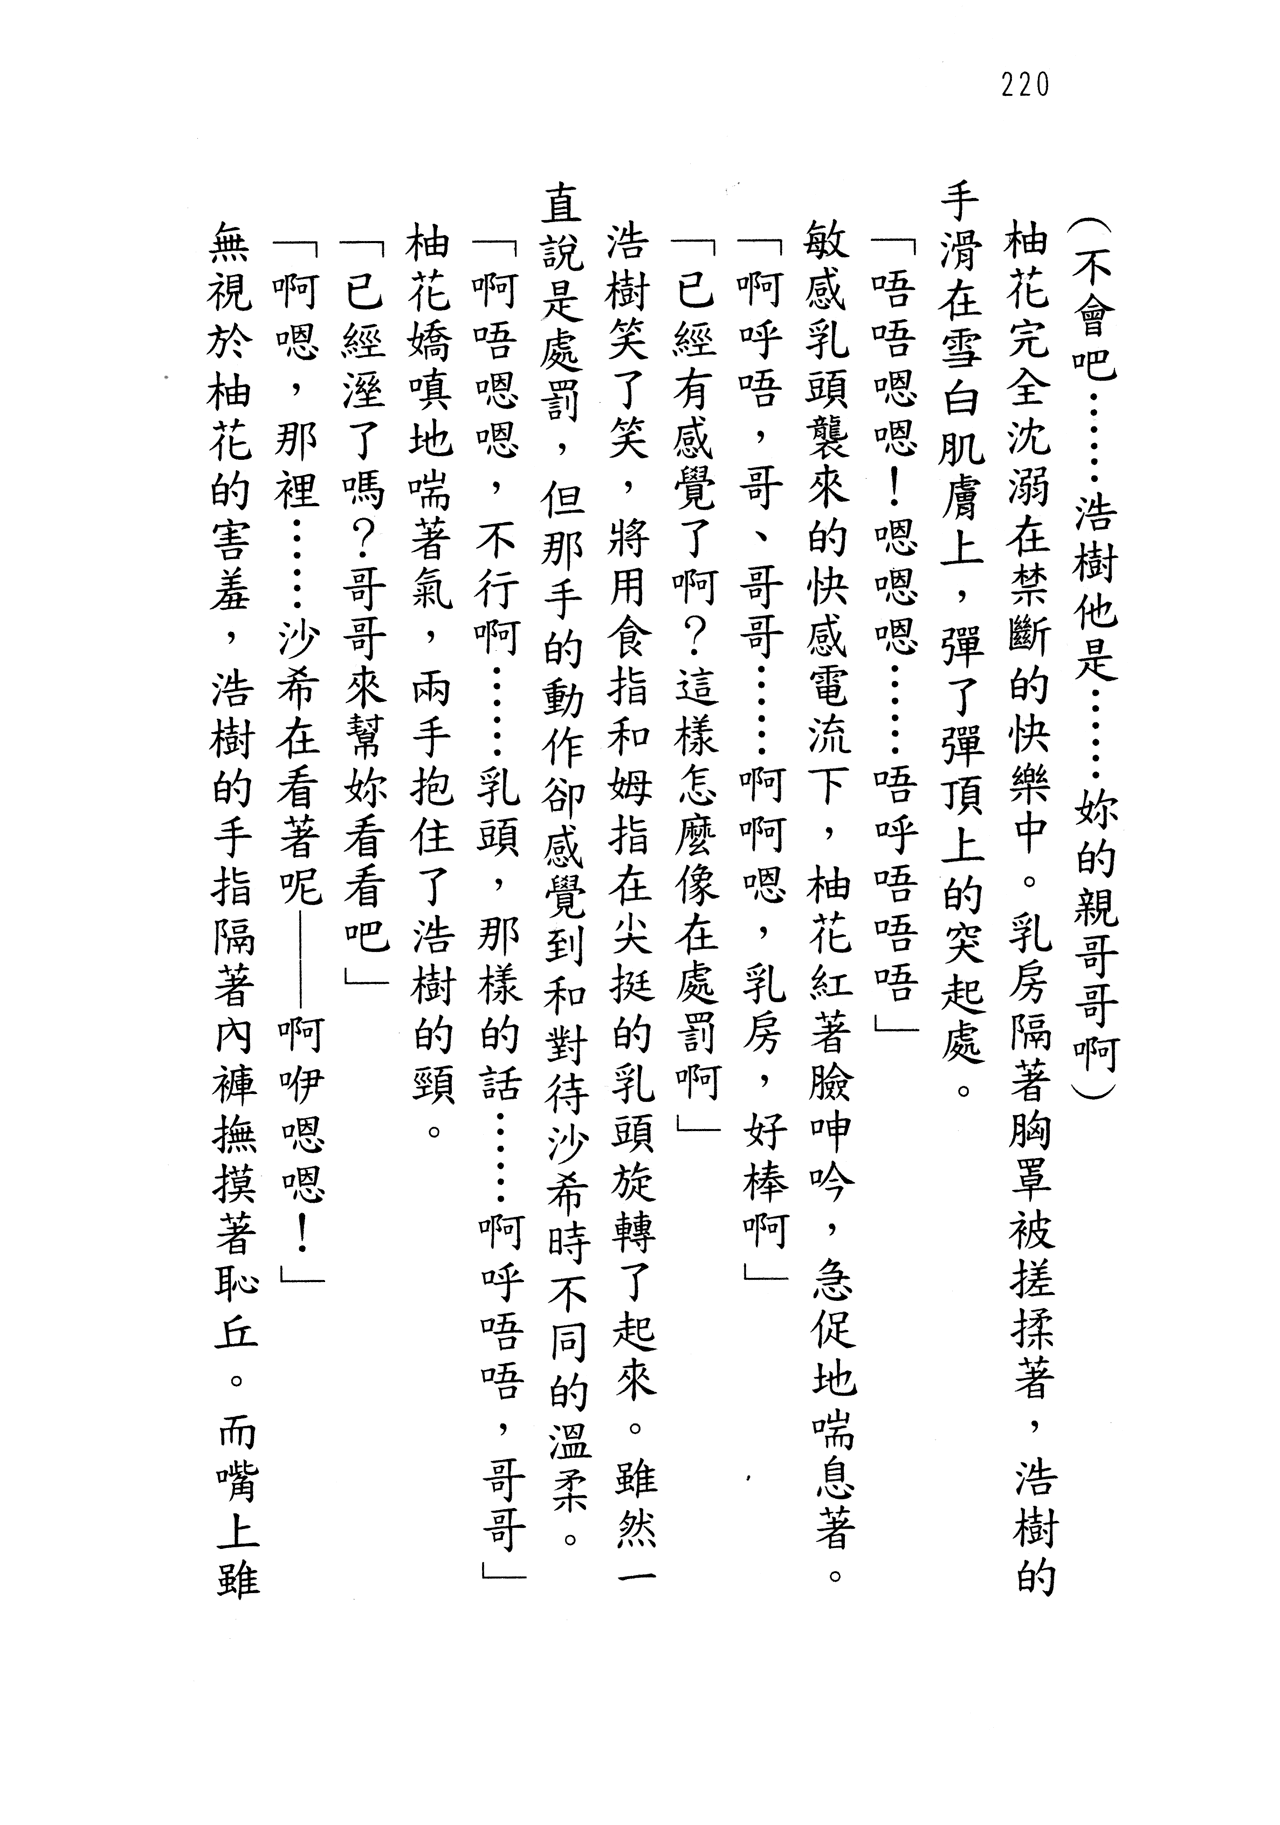 220
(不會吧……浩樹他是……妳的親哥哥啊)
柚花完全沈溺在禁斷的快樂中。乳房隔著胸罩被搓揉著，浩樹的
手滑在雪白肌膚上，彈了彈頂上的突起處。
「唔唔嗯嗯！嗯嗯嗯……唔呼唔唔唔」
敏感乳頭襲來的快感電流下，柚花紅著臉呻吟，急促地喘息著。
「啊呼唔，哥、哥哥……啊啊嗯，乳房，好棒啊」
「已經有感覺了啊？這樣怎麼像在處罰啊」
浩樹笑了笑，將用食指和姆指在尖挺的乳頭旋轉了起來。雖然一
直說是處罰，但那手的動作卻感覺到和對待沙希時不同的溫柔。
「啊唔嗯嗯，不行啊……乳頭，那樣的話……啊呼唔唔，哥哥」
柚花嬌嗔地喘著氣，兩手抱住了浩樹的頸。
「已經溼了嗎？哥哥來幫妳看看吧」
「啊嗯，那裡……沙希在看著呢——啊咿嗯嗯！」
無視於柚花的害羞，浩樹的手指隔著內褲撫摸著恥丘。而嘴上雖